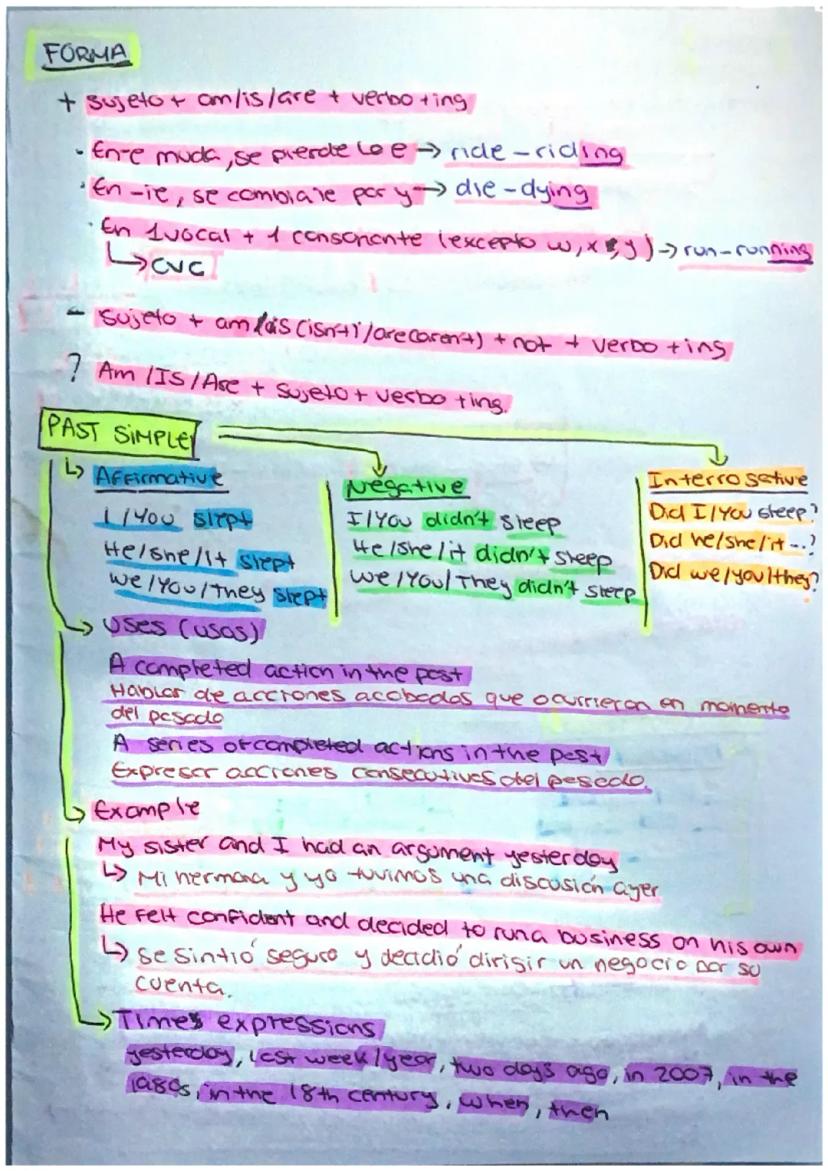 FORMA
+ sujeto + am/is/are + verbo + ing
· En-e muda, se pierde la e → ride - riding
· En -ie, se cambia ie por y → die - dying
· En 1 vocal + 1 consonante (excepto w, x e y) → run - running
↳ CVC
- sujeto + am/is (isn't)/are (aren't) + not + verbo + ing
? Am / Is / Are + sujeto + verbo + ing.
PAST SIMPLE
↳ Affirmative
I / You slept
He/she/it slept
We/You/they slept
Negative
I/You didn't sleep
He/she/it didn't sleep
We/You/They didn't sleep
Interrogative
Did I/You sleep?
Did he/she/it ...?
Did we/you/they?
→ Uses (usos)
A completed action in the past
Hablar de acciones acabadas que ocurrieron en momento
del pasado
A series of completed actions in the past
Expresar acciones consecutivas del pasado.
→ Example
My sister and I had an argument yesterday
↳ Mi hermana y yo tuvimos una discusión ayer
He felt confident and decided to run a business on his own
↳ Se sintió seguro y decidió dirigir un negocio por su
cuenta.
→ Times expressions
yesterday, last week/year, two days ago, in 2007, in the
1980s, in the 18th century, when, then